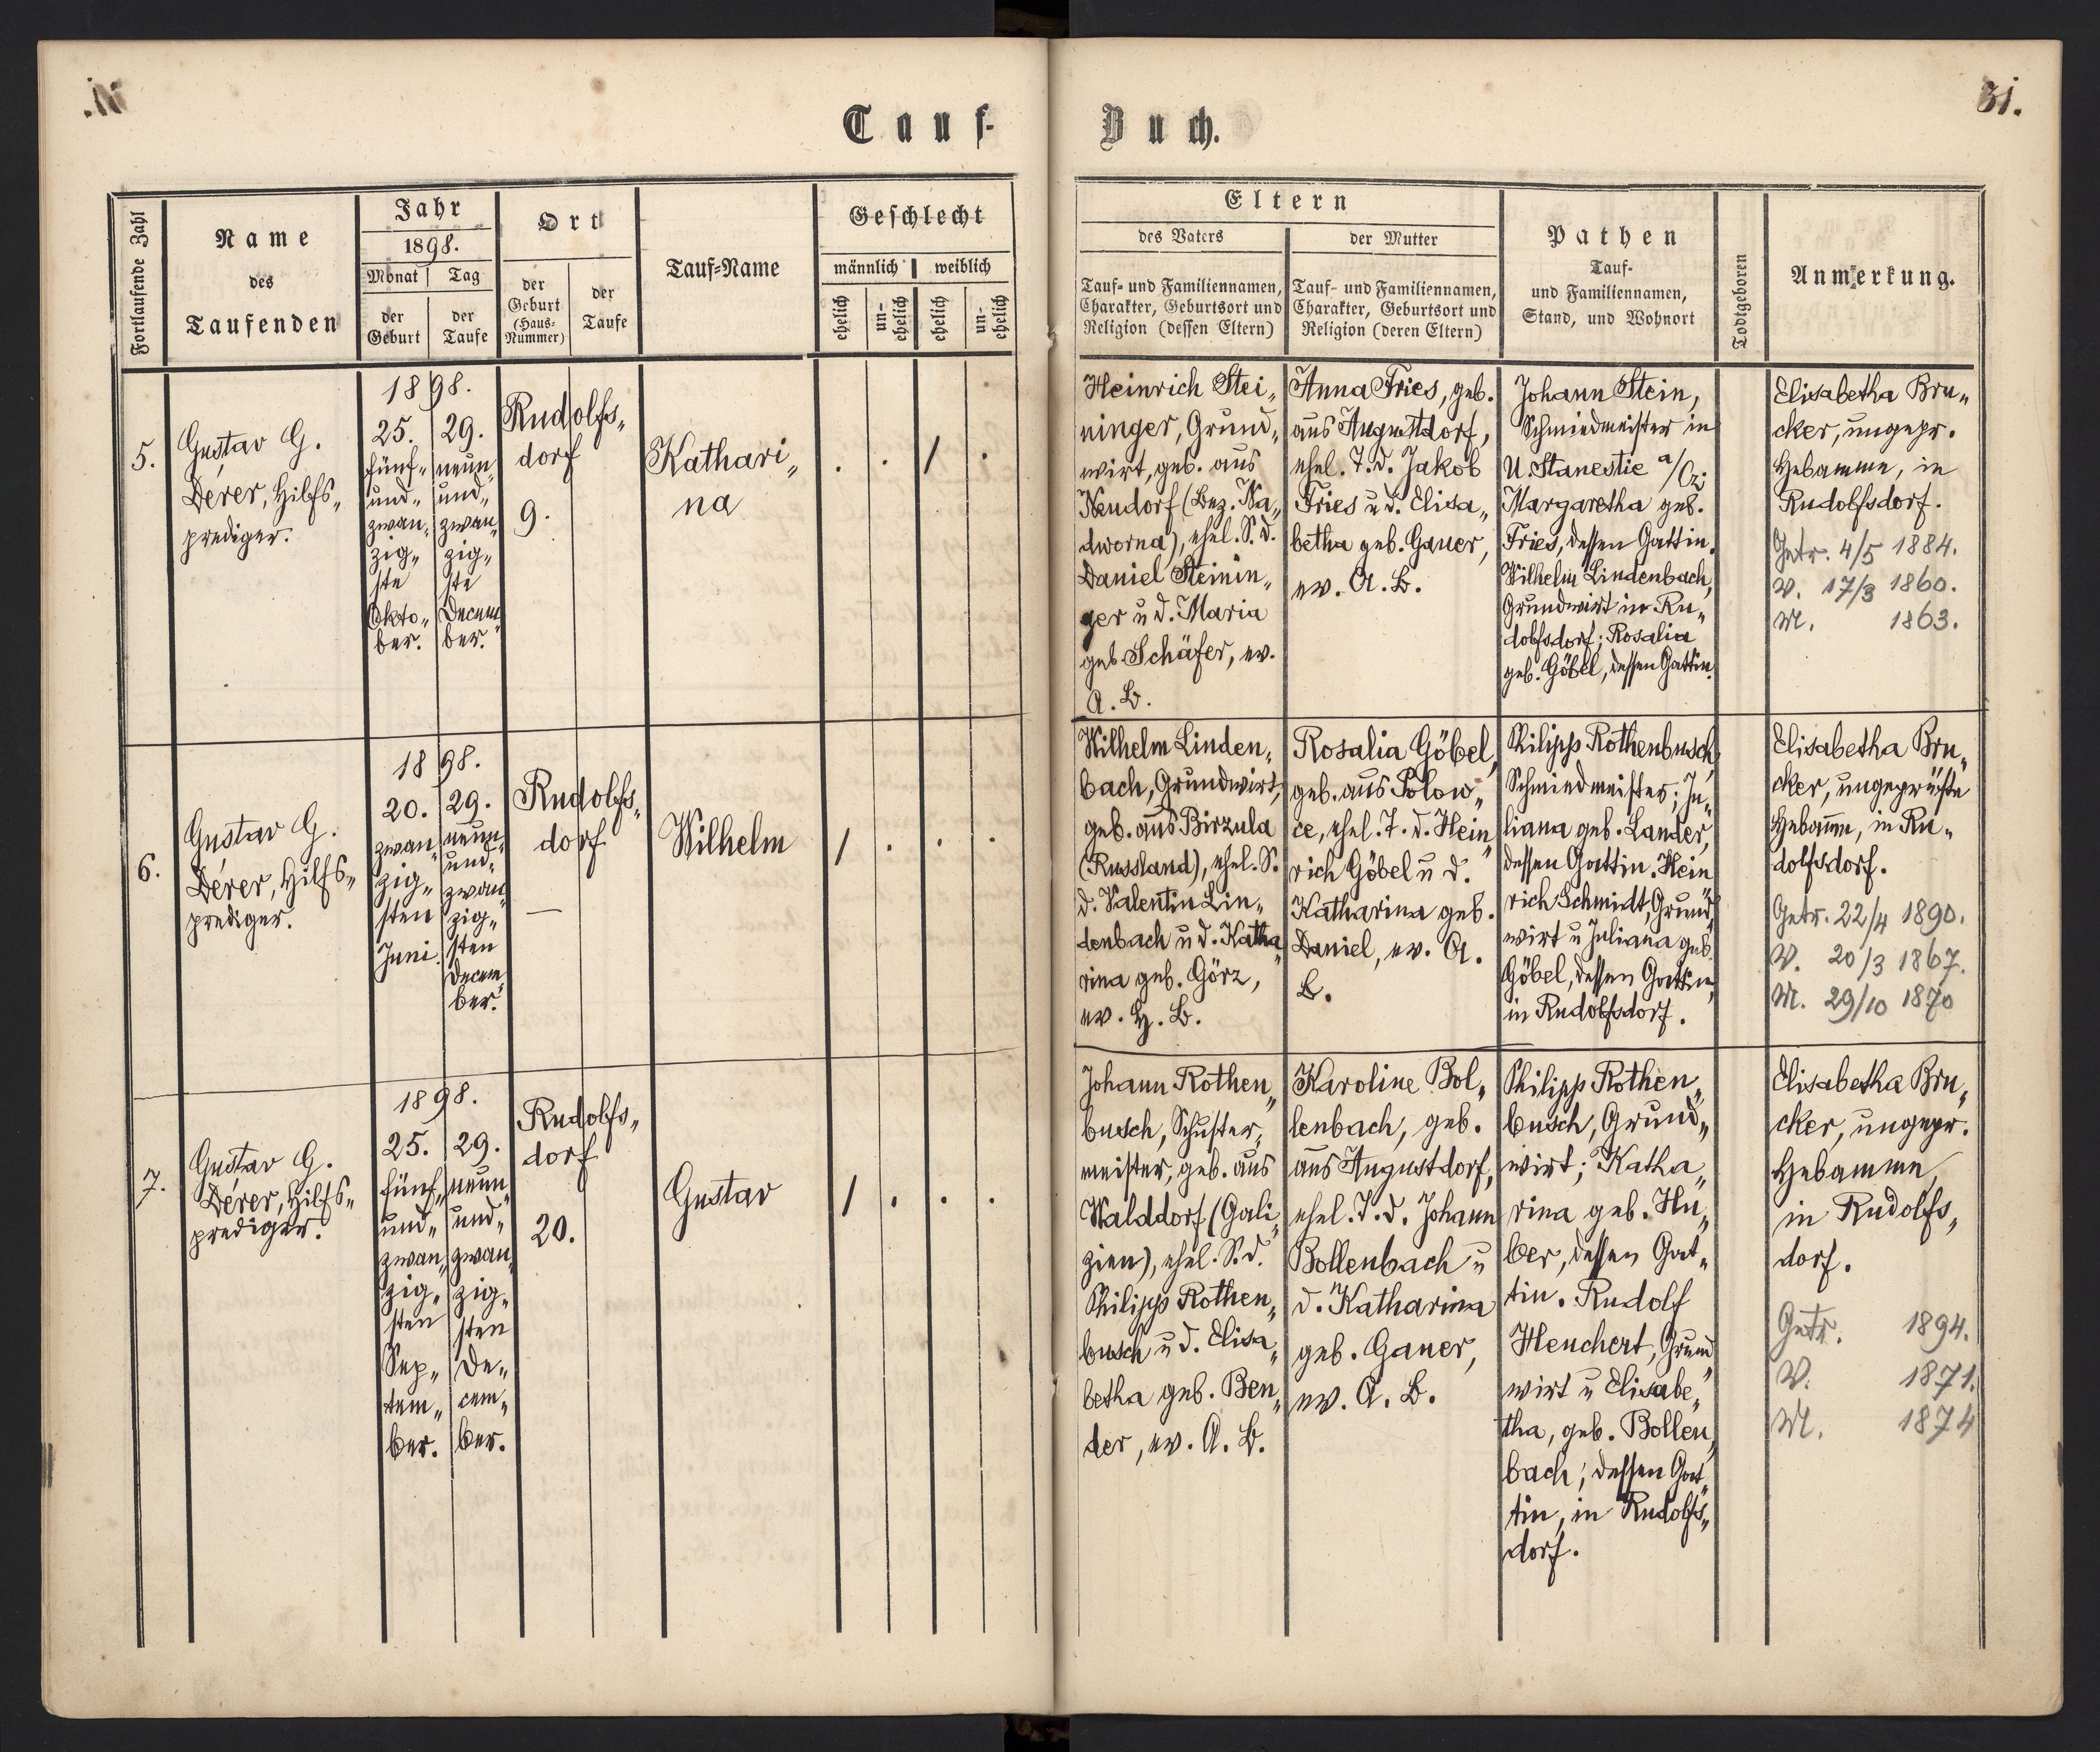 31.
Tauf-
Buch.
Fortlaufende Zahl
Name
des
Taufenden
Jahr
1898.
Monat
Tag
der
Geburt
der
Taufe
Ort
der
Geburt
(Haus-
Nummer)
der
Taufe
Tauf=Name
Geschlecht
männlich
weiblich
ehelich
un-
ehelich
ehelich
un-
ehelich
Eltern
des Vaters
der Mutter
Tauf= und Familiennamen,
Charakter, Geburtsort und
Religion (dessen Eltern)
Tauf- und Familiennamen,
Charakter, Geburtsort und
Religion (deren Eltern)
Pathen
Tauf-
und Familiennamen,
Stand, und Wohnort
Todtgeboren
Anmerkung.
5.
Gustav G.
Dérer, Hilfs„
prediger.
1898.
25.
fünf„
und„
zwan„
zig„
ste
Okto„
ber.
29.
neun„
und„
zwan„
zig„
ste
Decem„
ber.
Rudolfs„
dorf
9.
Kathari„
na
. . / .
Heinrich Stei„
ninger, Grund„
wirt, geb. aus
Neudorf (Bez. Na„
dworna), ehel. S. d.
Daniel Steinin„
ger u d. Maria
geb. Schäfer, ev.
A. B.
Anna Fries, geb.
aus Augustdorf,
ehel. T. d. Jakob
Fries u d. Elisa„
betha geb. Gauer,
ev. A. B.
Johann Stein,
Schmiedmeister in
U. Stanestie a/Cz;
Margaretha geb.
Fries, dessen Gattin.
Wilhelm Lindenbach,
Grundwirt in Ru„
dolfsdorf; Rosalia
geb. Göbel, dessen Gattin.
Elisabetha Bru„
cker, ungepr.
Hebamme, in
Rudolfsdorf.
Getr. 4/5 1884.
V. 17/3 1860.
M. 1863.
6.
Gustav G.
Dérer, Hilfs„
prediger.
1898.
20.
zwan„
zig„
sten
Juni.
29.
neun„
und„
zwan„
zig„
sten
Decem„
ber.
Rudolfs„
dorf
—
Wilhelm
/ . . .
Wilhelm Linden„
bach, Grundwirt,
geb. aus Birzula
(Russland), ehel. S.
d. Valentin Lin„
denbach u d. Katha„
rina geb. Görz,
ev. H. B.
Rosalia Göbel,
geb. aus Polow„
ce, ehel. T. d. Hein„
rich Göbel u d.
Katharina geb.
Daniel, ev. A.
B.
Philipp Rothenbusch,
Schmiedmeister; Ju„
liana geb. Lander,
dessen Gattin. Hein„
rich Schmidt, Grund„
wirt u Juliana geb.
Göbel, dessen Gattin,
in Rudolfsdorf.
Elisabetha Bru„
cker, ungeprüfte
Hebamm̄, in Ru„
dolfsdorf.
Getr. 22/4 1890.
V. 20/3 1867.
M. 29/10 1870
7.
Gustav G.
Dérer, Hilfs„
prediger.
1898.
25.
fünf„
und„
zwan„
zig„
sten
Sep„
tem„
ber.
29.
neun„
und„
zwan„
zig„
sten
De„
cem„
ber.
Rudolfs„
dorf
20.
Gustav
/ . . .
Johann Rothen„
busch, Schuster„
meister, geb. aus
Walddorf (Gali„
zien), ehel. S. d.
Philipp Rothen„
busch u d. Elisa„
betha geb. Ben„
der, ev. A. B.
Karoline Bol„
lenbach, geb.
aus Augustdorf,
ehel. T. d. Johann
Bollenbach u
d. Katharina
geb. Gauer,
ev. A. B.
Philipp Rothen„
busch, Grund„
wirt; Katha„
rina geb. Hu„
ber, dessen Gat„
tin. Rudolf
Heuchert, Grund„
wirt u Elisabe„
tha, geb. Bollen„
bach; dessen Gat„
tin, in Rudolfs„
dorf.
Elisabetha Bru„
cker, ungepr.
Hebamme,
in Rudolfs„
dorf.
Getr. 1894.
V. 1871.
M. 1874